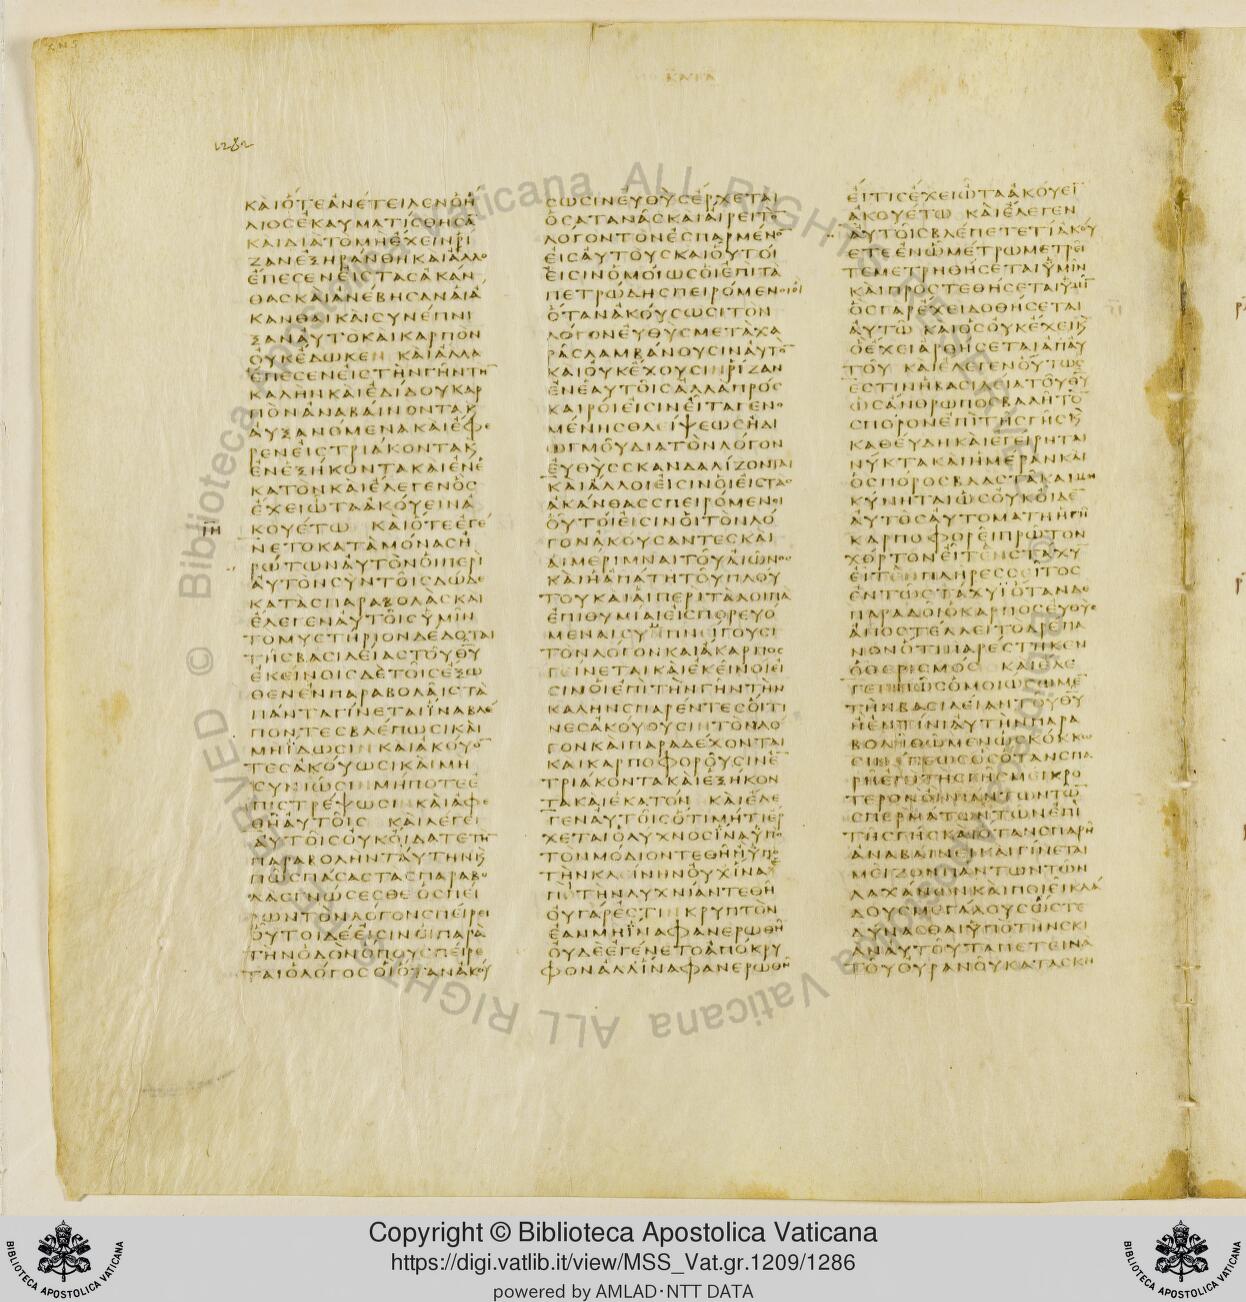 ΚΑΙΟΤΕΑΝΕΤΕΙΛΕΝΟΗ
ΛΙΟΣΕΚΑΥΜΑΤΙΣΘΗΣΑ
ΚΑΙΔΙΑΤΟΜΗΕΧΕΙΝΡΙ
ΖΑΝΕΞΗΡΑΝΘΗΚΑΙΑΛΛΟ
ΕΠΕΣΕΝΕΙΣΤΑΣΑΚΑΝ
ΘΑΣΚΑΙΑΝΕΒΗΣΑΝΑΙΑ
ΚΑΝΘΑΙΚΑΙΣΥΝΕΠΝΙ
ΞΑΝΑΥΤΟΚΑΙΚΑΡΠΟΝ
ΟΥΚΕΔΩΚΕΝ ΚΑΙΑΛΛΑ
ΕΠΕΣΕΝΕΙΣΤΗΝΓΗΝΤΗ
ΚΑΛΗΝΚΑΙΕΔΙΔΟΥΚΑΡ
ΠΟΝΑΝΑΒΑΙΝΟΝΤΑΚ
ΑΥΞΑΝΟΜΕΝΑΚΑΙΕΦΕ
ΡΕΝΕΙΣΤΡΙΑΚΟΝΤΑΚ
ΕΝΕΞΗΚΟΝΤΑΚΑΙΕΝΕ
ΚΑΤΟΝΚΑΙΕΛΕΓΕΝΟΣ
ΕΧΕΙΩΤΑΑΚΟΥΕΙΝΑ
ΙΗ ΚΟΥΕΤΩ ΚΑΙΟΤΕΕΓΕ
ΝΕΤΟΚΑΤΑΜΟΝΑΣΗ
ΡΩΤΩΝΑΥΤΟΝΟΙΠΕΡΙ
ΑΥΤΟΝΣΥΝΤΟΙΣΔΩΔΕ
ΚΑΤΑΣΠΑΡΑΒΟΛΑΣΚΑΙ
ΕΛΕΓΕΝΑΥΤΟΙΣΥΜΙΝ
ΤΟΜΥΣΤΗΡΙΟΝΔΕΔΟΤΑΙ
ΤΗΣΒΑΣΙΛΕΙΑΣΤΟΥΘΥ
ΕΚΕΙΝΟΙΣΔΕΤΟΙΣΕΞΩ
ΘΕΝΕΝΠΑΡΑΒΟΛΑΙΣΤΑ
ΠΑΝΤΑΓΙΝΕΤΑΙΪΝΑΒΛΕ
ΠΟΝΤΕΣΒΛΕΠΩΣΙΚΑΙ
ΜΗΪΔΩΣΙΝ ΚΑΙΑΚΟΥΟ
ΤΕΣΑΚΟΥΩΣΙΚΑΙΜΗ
ΣΥΝΙΩΣΙΝΜΗΠΟΤΕΕ
ΠΙΣΤΡΕΨΩΣΙΝ ΚΑΙΑΦΕ
ΘΗΑΥΤΟΙΣ ΚΑΙΛΕΓΕΙ
ΑΥΤΟΙΣΟΥΚΟΙΔΑΤΕΤΗ
ΠΑΡΑΒΟΛΗΝΤΑΥΤΗΝΚ
ΠΩΣΠΑΣΑΣΤΑΣΠΑΡΑΒΟ
ΛΑΣΓΝΩΣΕΣΘΕ ΟΣΠΕΙ
ΡΩΝΤΟΝΛΟΓΟΝΣΠΕΙΡΕΙ
ΟΥΤΟΙΔΕΕΙΣΙΝΟΙΠΑΡΑ
ΤΗΝΟΔΟΝΟΠΟΥΣΠΕΙΡΕ
ΤΑΙΟΛΟΓΟΣΟΙΟΤΑΝΑΚΟΥ
ΣΩΣΙΝΕΥΘΥΣΕΡΧΕΤΑΙ
ΟΣΑΤΑΝΑΣΚΑΙΑΙΡΕΙΤΟ
ΛΟΓΟΝΤΟΝΕΣΠΑΡΜΕΝΟ
ΕΙΣΑΥΤΟΥΣΚΑΙΟΥΤΟΙ
ΕΙΣΙΝΟΜΟΙΩΣΟΙΕΠΙΤΑ
ΠΕΤΡΩΔΗΣΠΕΙΡΟΜΕΝΟΙΟΙ
ΟΤΑΝΑΚΟΥΣΩΣΙΤΟΝ
ΛΟΓΟΝΕΥΘΥΣΜΕΤΑΧΑ
ΡΑΣΛΑΜΒΑΝΟΥΣΙΝΑΥΤΟ
ΚΑΙΟΥΚΕΧΟΥΣΙΝΡΙΖΑΝ
ΕΝΕΑΥΤΟΙΣΑΛΛΑΠΡΟΣ
ΚΑΙΡΟΙΕΙΣΙΝΕΙΤΑΓΕΝΟ
ΜΕΝΗΣΘΛΕΙΨΕΩΣΗΔΙ
ΩΓΜΟΥΔΙΑΤΟΝΛΟΓΟΝ
ΕΥΘΥΣΣΚΑΝΔΑΛΙΖΟΝΤΑΙ
ΚΑΙΑΛΛΟΙΕΙΣΙΝΟΙΕΙΣΤΑΣ
ΑΚΑΝΘΑΣΣΠΕΙΡΟΜΕΝΟΙ
ΟΥΤΟΙΕΙΣΙΝΟΙΤΟΝΛΟ
ΓΟΝΑΚΟΥΣΑΝΤΕΣΚΑΙ
ΑΙΜΕΡΙΜΝΑΙΤΟΥΑΙΩΝΟΣ
ΚΑΙΗΑΠΑΤΗΤΟΥΠΛΟΥ
ΤΟΥΚΑΙΑΙΠΕΡΙΤΑΛΟΙΠΑ
ΕΠΙΘΥΜΙΑΙΕΙΣΠΟΡΕΥΟ
ΜΕΝΑΙΣΥΜΠΝΙΓΟΥΣΙ
ΤΟΝΛΟΓΟΝΚΑΙΑΚΑΡΠΟΣ
ΓΕΙΝΕΤΑΙΚΑΙΕΚΕΙΝΟΙΕΙ
ΣΙΝΟΙΕΠΙΤΗΝΓΗΝΤΗΝ
ΚΑΛΗΝΣΠΑΡΕΝΤΕΣΟΙΤΙ
ΝΕΣΑΚΟΥΟΥΣΙΝΤΟΝΛΟ
ΓΟΝΚΑΙΠΑΡΑΔΕΧΟΝΤΑΙ
ΚΑΙΚΑΡΠΟΦΟΡΟΥΣΙΝΕ
ΤΡΙΑΚΟΝΤΑΚΑΙΕΞΗΚΟΝ
ΤΑΚΑΙΕΚΑΤΟΝ ΚΑΙΕΛΕ
ΓΕΝΑΥΤΟΙΣΟΤΙΜΗΤΙΕΡ
ΧΕΤΑΙΟΛΥΧΝΟΣΪΝΑΥΠΟ
ΤΟΝΜΟΔΙΟΝΤΕΘΗΗΥΠΟ
ΤΗΝΚΛΙΝΗΝΟΥΧΙΝΑ
ΥΠΟΤΗΝΛΥΧΝΙΑΝΤΕΘΗ
ΟΥΓΑΡΕΣΤΙΝΚΡΥΠΤΟΝ
ΕΑΝΜΗΪΝΑΦΑΝΕΡΩΘΗ
ΟΥΔΕΕΓΕΝΕΤΟΑΠΟΚΡΥ
ΦΟΝΑΛΛΙΝΑΦΑΝΕΡΩΘΗ
ΕΙΤΙΣΕΧΕΙΩΤΑΑΚΟΥΕΙ
ΑΚΟΥΕΤΩ ΚΑΙΕΛΕΓΕΝ
ΑΥΤΟΙΣΒΛΕΠΕΤΕΤΙΑΚΟΥ
ΕΤΕΕΝΩΜΕΤΡΩΜΕΤΡΕΙ
ΤΕΜΕΤΡΗΘΗΣΕΤΑΙΥΜΙΝ
ΚΑΙΠΡΟΣΤΕΘΗΣΕΤΑΙΥΜΙ
ΟΣΓΑΡΕΧΕΙΔΟΘΗΣΕΤΑΙ
ΑΥΤΩ ΚΑΙΟΣΟΥΚΕΧΕΙΚ
ΟΕΧΕΙΑΡΘΗΣΕΤΑΙΑΠΑΥ
ΤΟΥ ΚΑΙΕΛΕΓΕΝΟΥΤΩΣ
ΕΣΤΙΝΗΒΑΣΙΛΕΙΑΤΟΥΘΥ
ΩΣΑΝΘΡΩΠΟΣΒΑΛΗΤΟ
ΣΠΟΡΟΝΕΠΙΤΗΣΓΗΣΚ
ΚΑΘΕΥΔΗΚΑΙΕΓΕΙΡΗΤΑΙ
ΝΥΚΤΑΚΑΙΗΜΕΡΑΝΚΑΙ
ΟΣΠΟΡΟΣΒΛΑΣΤΑΚΑΙΜΗ
ΚΥΝΗΤΑΙΩΣΟΥΚΟΙΔΕ
ΑΥΤΟΣΑΥΤΟΜΑΤΗΗΓΗ
ΚΑΡΠΟΦΟΡΕΙΠΡΩΤΟΝ
ΧΟΡΤΟΝΕΙΤΕΝΣΤΑΧΥ
ΕΙΤΕΝΠΛΗΡΕΣΣΕΙΤΟΣ
ΕΝΤΩΣΤΑΧΥΪΟΤΑΝΔΕ
ΠΑΡΑΔΟΙΟΚΑΡΠΟΣΕΥΘΥΣ
ΑΠΟΣΤΕΛΛΕΙΤΟΔΡΕΠΑ
ΝΟΝΟΤΙΠΑΡΕΣΤΗΚΕΝ
ΟΘΕΡΙΣΜΟΣ ΚΑΙΕΛΕ
ΓΕΝΠΩΣΟΜΟΙΩΣΩΜΕ
ΤΗΝΒΑΣΙΛΕΙΑΝΤΟΥΘΥ
ΗΕΝΤΙΝΙΑΥΤΗΝΠΑΡΑ
ΒΟΛΗΘΩΜΕΝΩΣΚΟΚΚΩ
ΣΙΝΑΠΕΩΣΟΣΟΤΑΝΣΠΑ
ΡΗΕΠΙΤΗΣΓΗΣΜΕΙΚΡΟ
ΤΕΡΟΝΟΝΠΑΝΤΩΝΤΩ
ΣΠΕΡΜΑΤΩΝΤΩΝΕΠΙ
ΤΗΣΓΗΣΚΑΙΟΤΑΝΣΠΑΡΗ
ΑΝΑΒΑΙΝΕΙΚΑΙΓΙΝΕΤΑΙ
ΜΕΙΖΟΝΠΑΝΤΩΝΤΩΝ
ΛΑΧΑΝΩΝΚΑΙΠΟΙΕΙΚΛΑ
ΔΟΥΣΜΕΓΑΛΟΥΣΩΣΤΕ
ΔΥΝΑΣΘΑΙΥΠΟΤΗΝΣΚΙ
ΑΝΑΥΤΟΥΤΑΠΕΤΕΙΝΑ
ΤΟΥΟΥΡΑΝΟΥΚΑΤΑΣΚΗ
Copyright © Biblioteca Apostolica Vaticana
https://digi.vatlib.it/view/MSS_Vat.gr.1209/1286
powered by AMLAD·NTT DATA